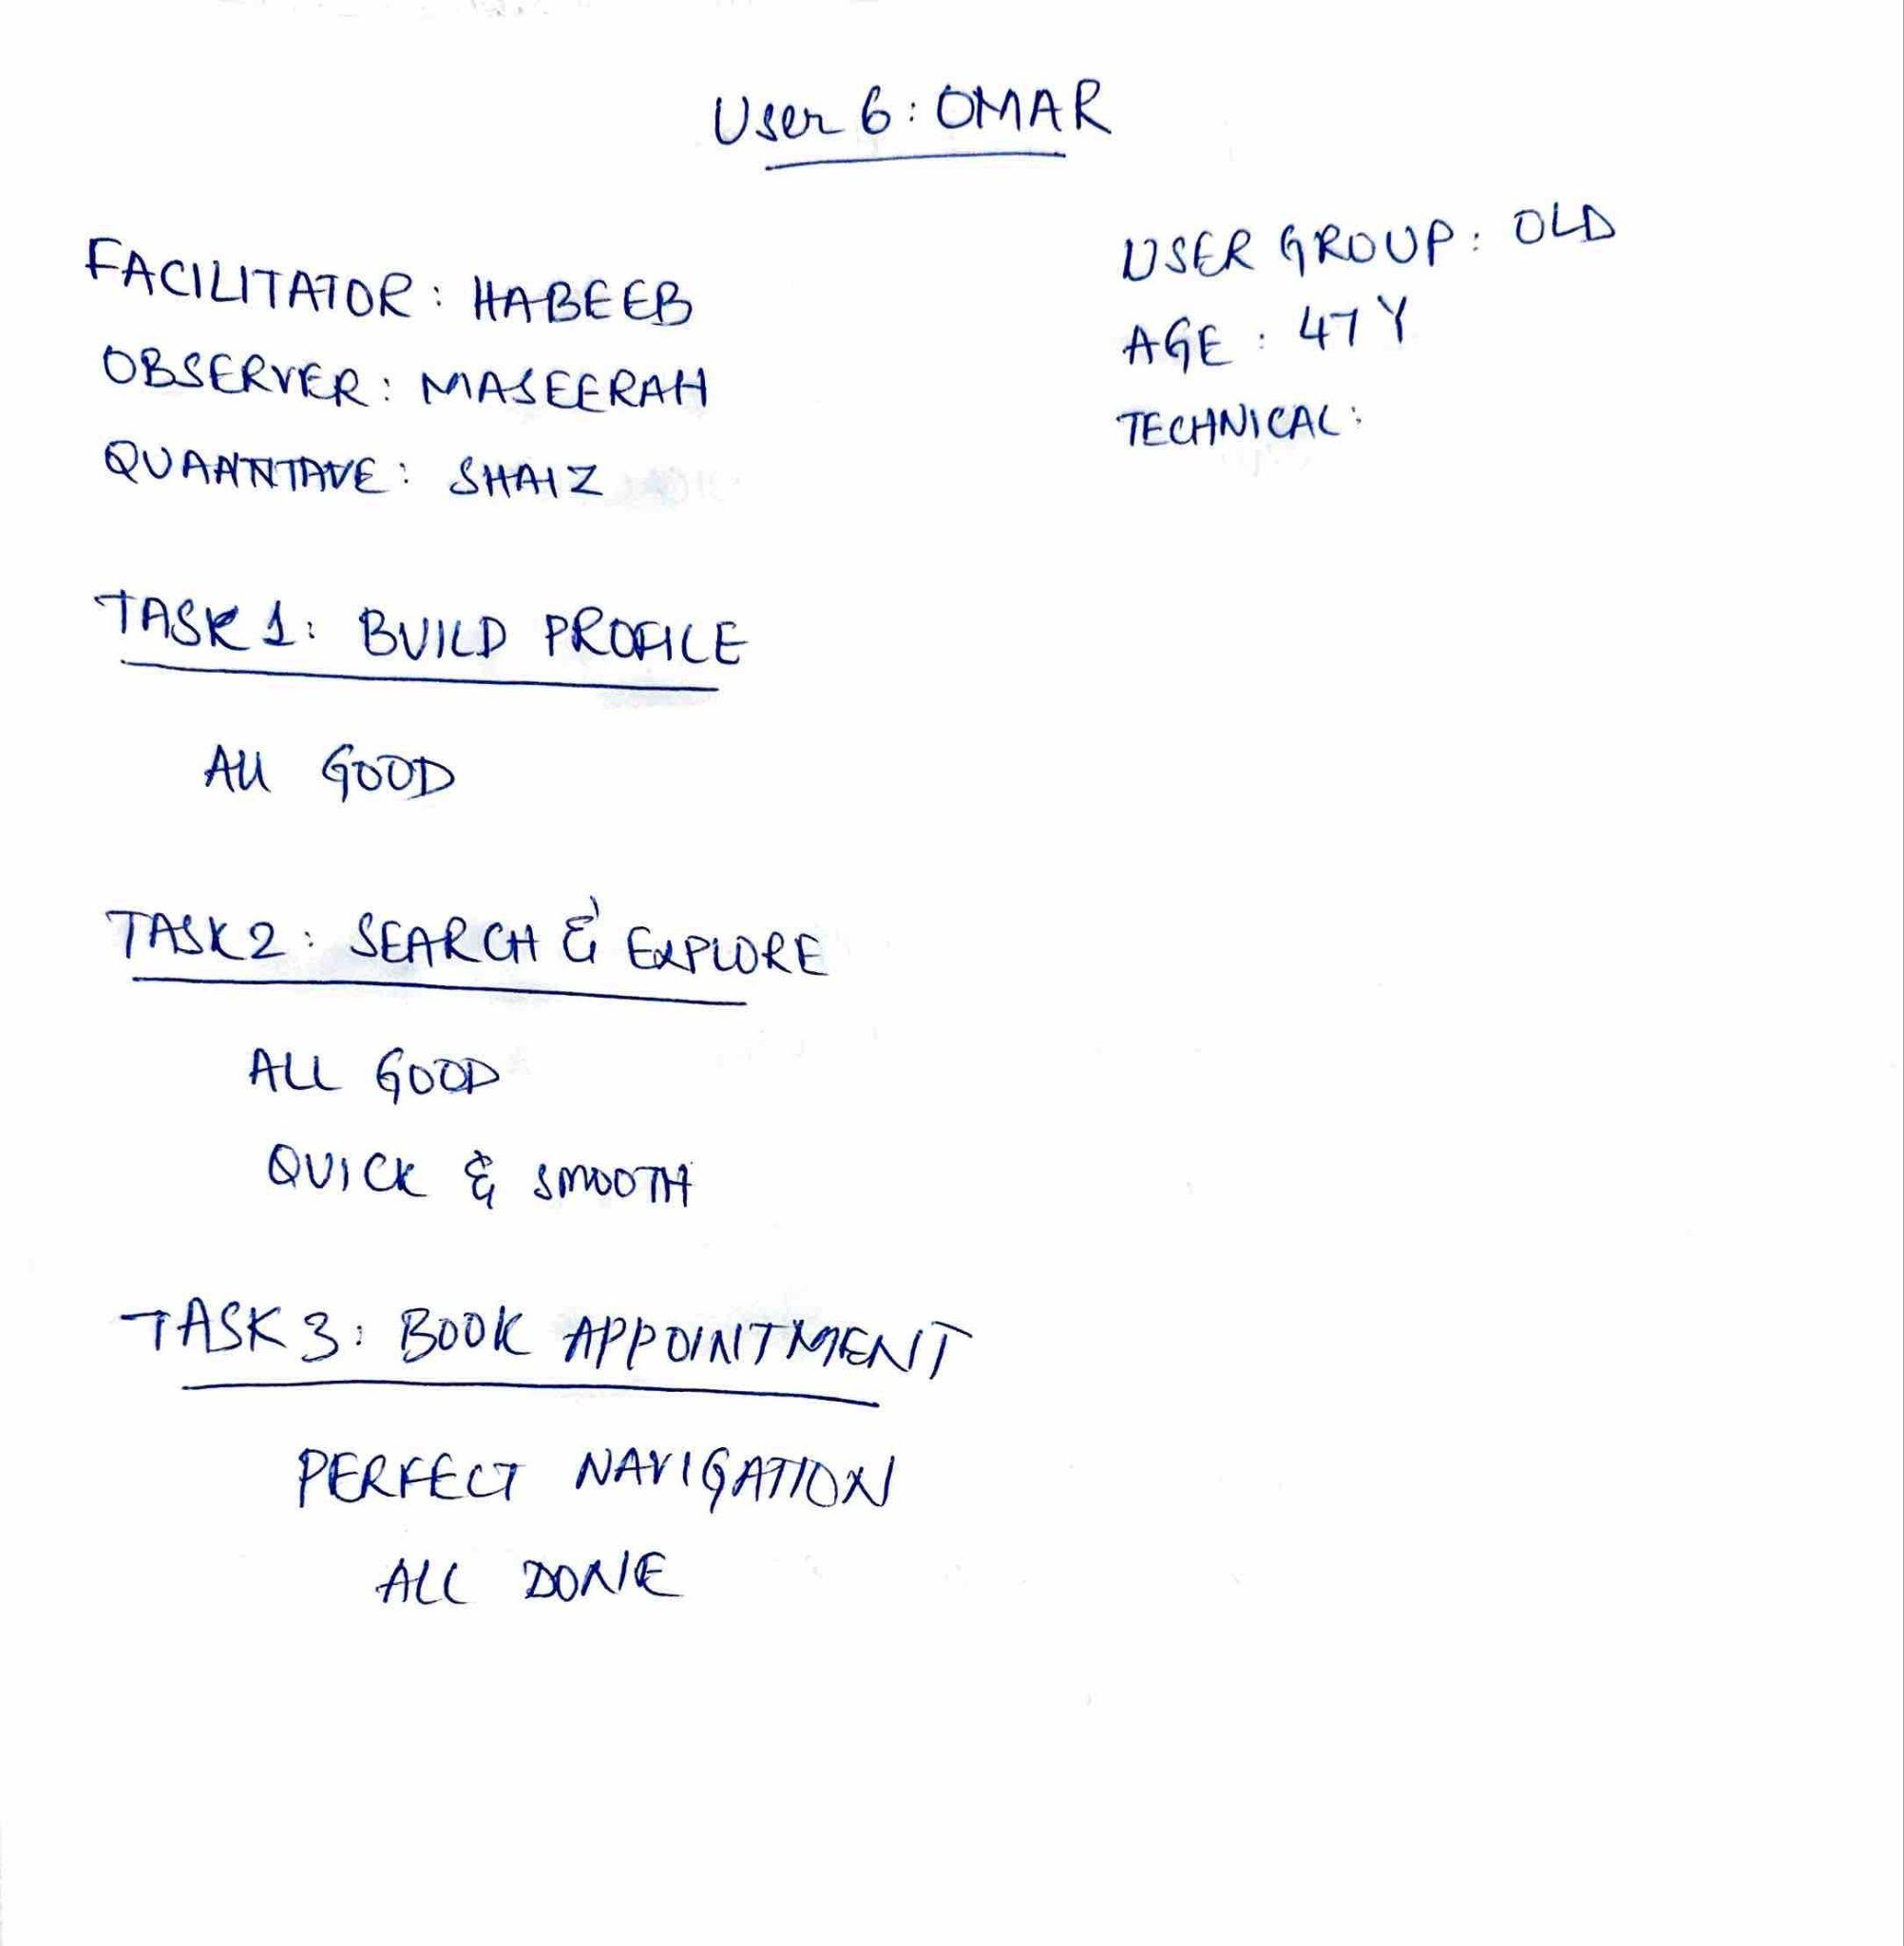 User 6: OMAR
FACILITATOR: HABEEB
OBSERVER: MASEERAH
QUAANTATVE: SHAIZ
USER GROUP: OLD
AGE: 47 Y
TECHNICAL:
TASK 1: BUILD PROFILE
All GOOD
TASK 2: SEARCH & EXPLORE
ALL GOOD
QUICK & SMOOTH
TASK 3: BOOK APPOINTMENT
PERFECT NAVIGATION
ALL DONE